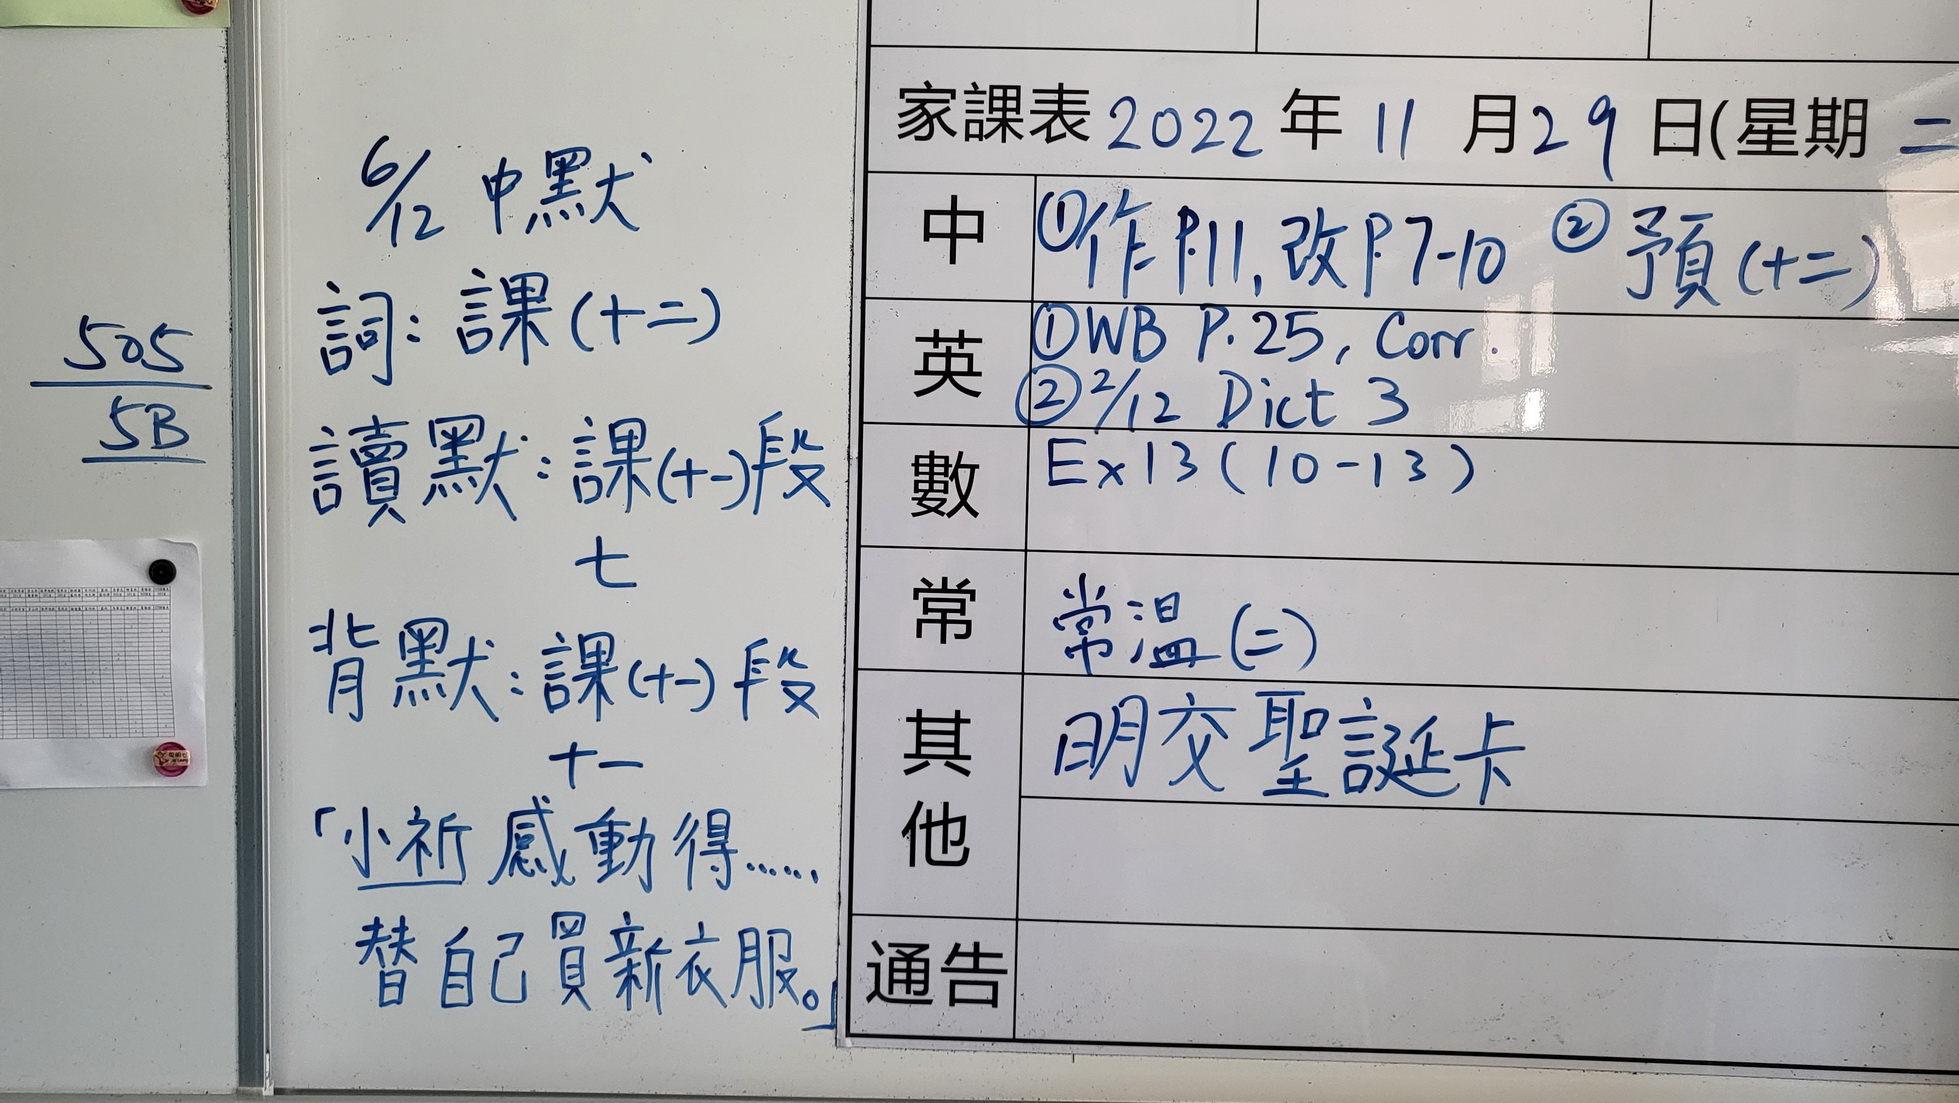 505
5B
6/12 中默
詞：課(十二)
讀默：課(十一)段
七
背默：課(十一)段
十一
「小祈感動得……
替自己買新衣服。」
家課表 2022 年 11 月 29 日(星期 二
中 ①作 P.11, 改 P.7-10 ② 預(十二)
英 ①WB P.25, Corr.
②2/12 Dict 3
數 Ex13(10-13)
常 常溫(二)
其他 明交聖誕卡
通告